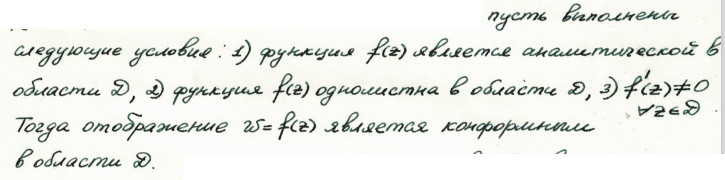 пусть выполнены
следующие условия: 1) функция f(z) является аналитической в
области D, 2) функция f(z) однолистна в области D, 3) f'(z)≠0
∀z∈D.
Тогда отображение w=f(z) является конформным
в области D.